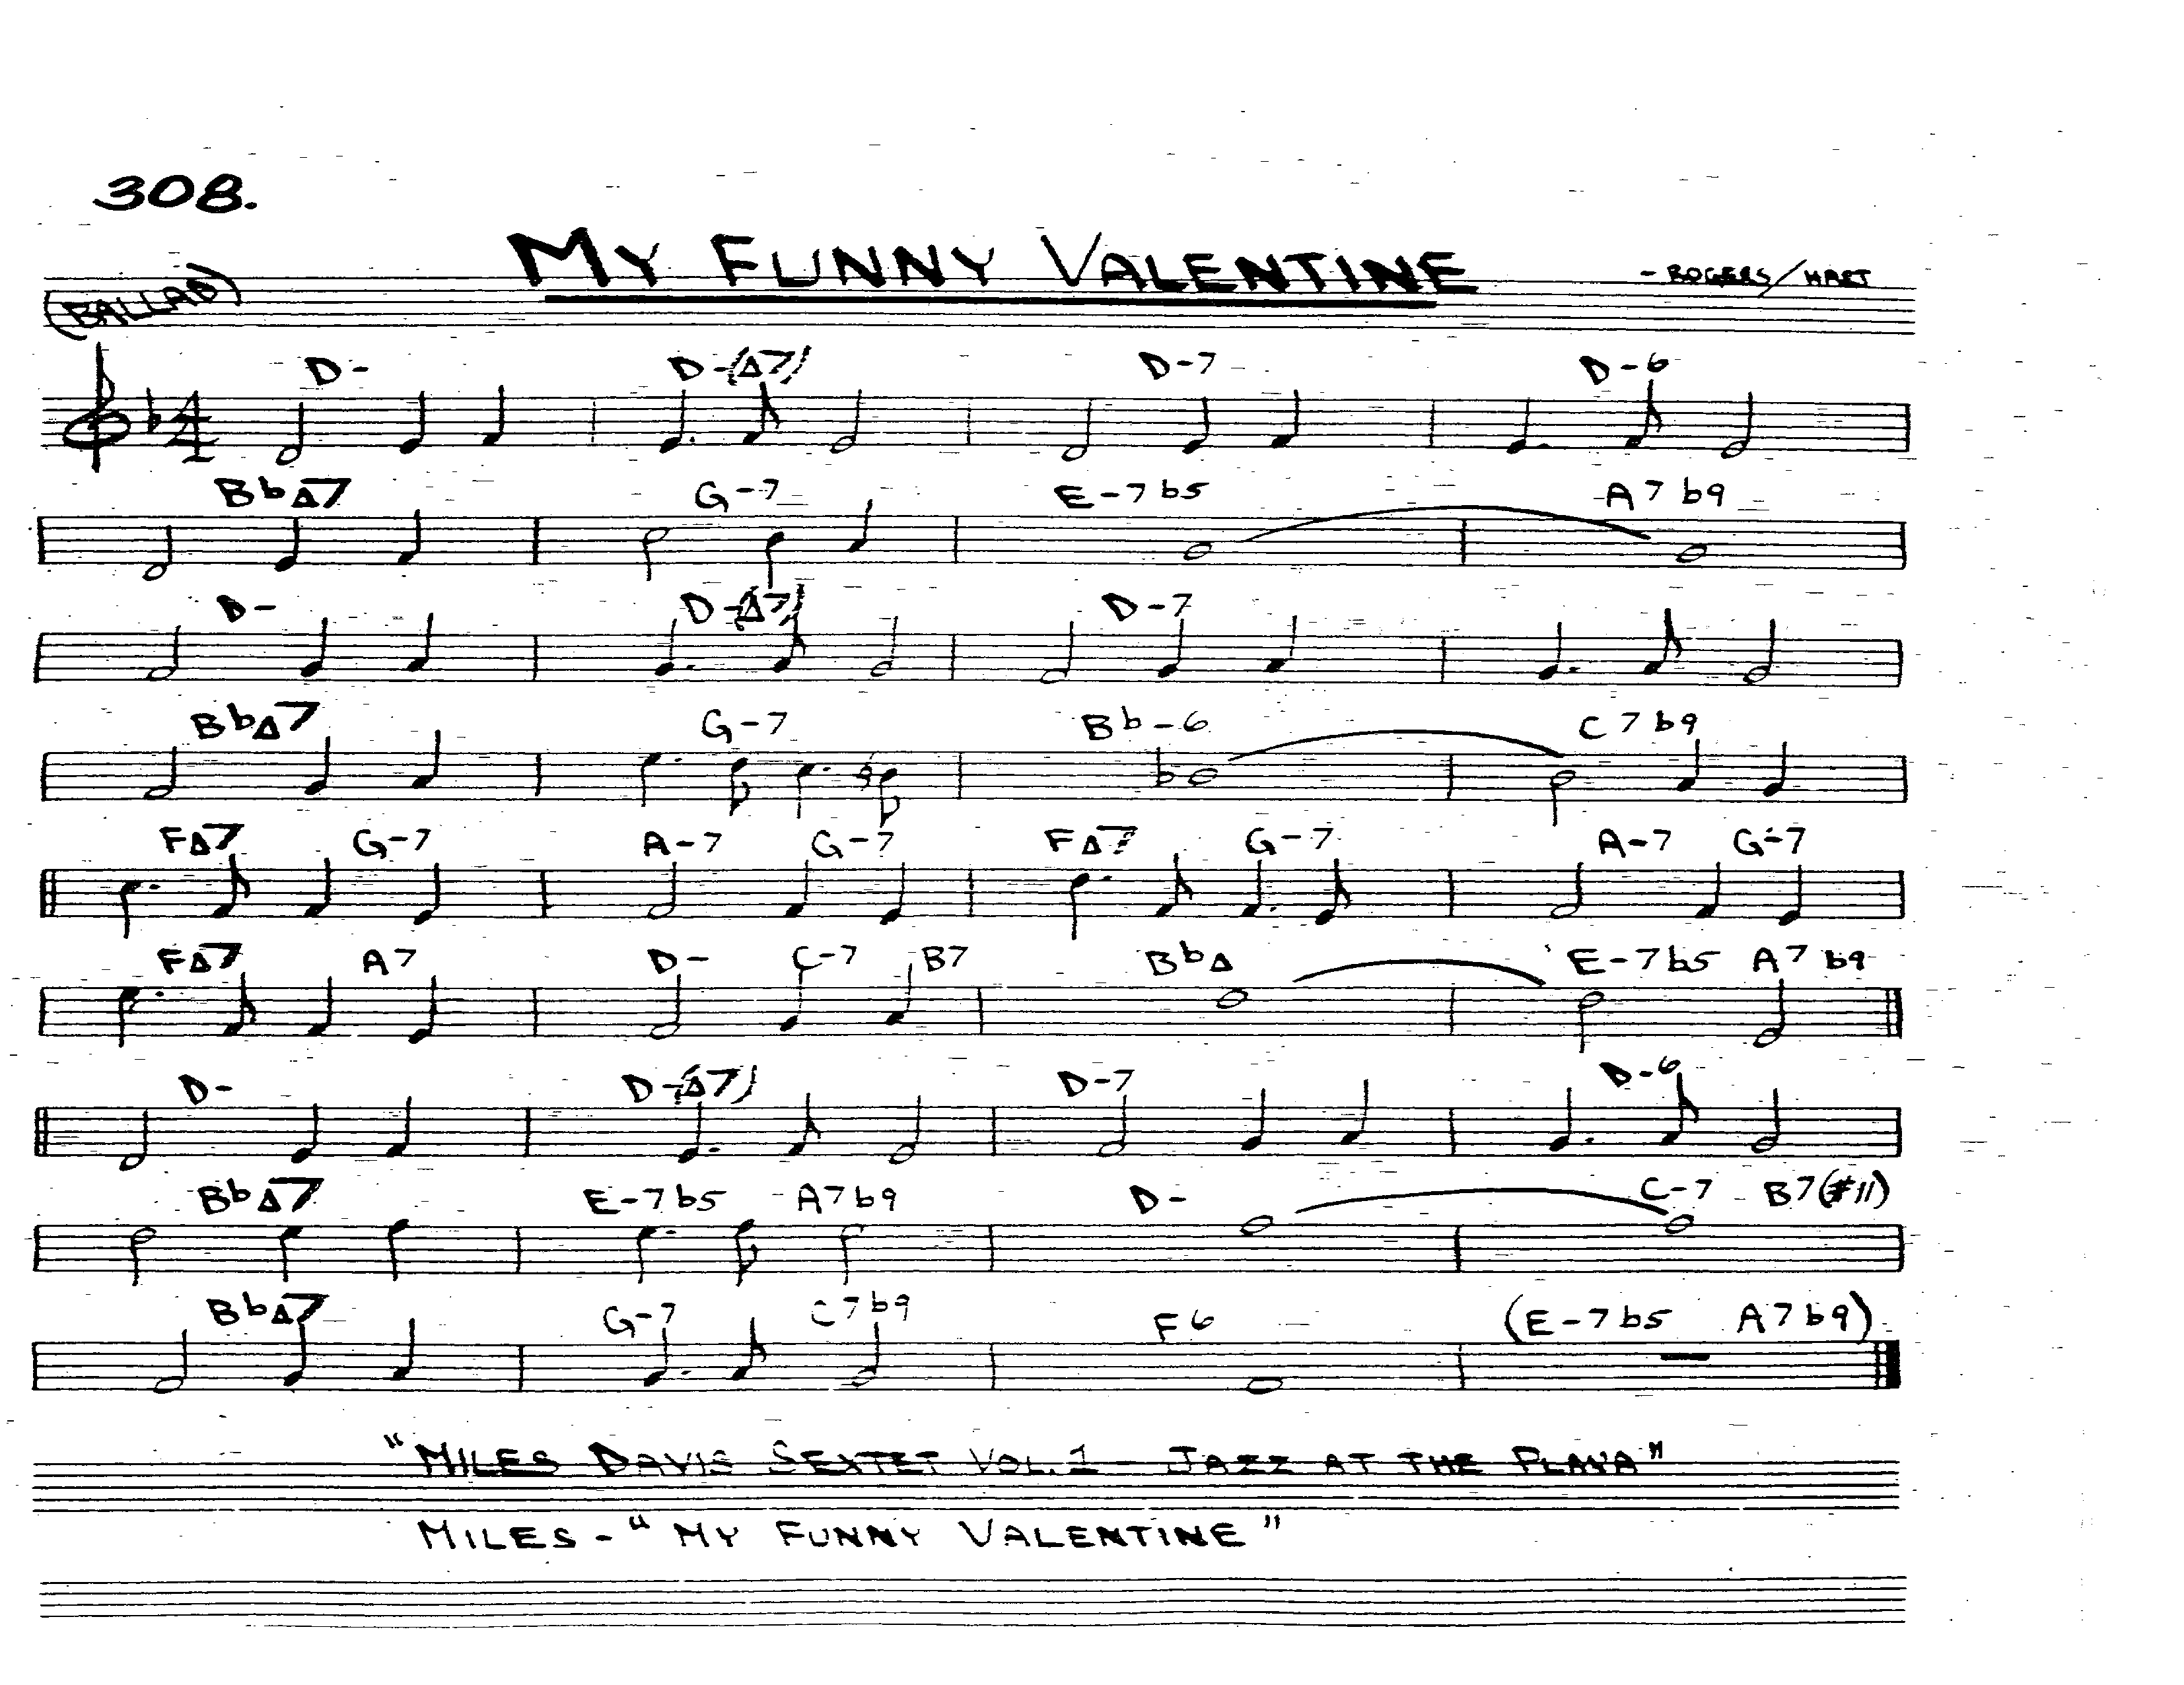 308.
MY FUNNY VALENTINE
(BALLAD)
- ROGERS/HART
D- D-(Δ7) D-7 D-6
BbΔ7 G-7 E-7b5 A7b9
D- D-(Δ7) D-7
BbΔ7 G-7 Bb-6 C7b9
FΔ7 G-7 A-7 G-7 FΔ7 G-7 A-7 G-7
FΔ7 A7 D- C-7 B7 BbΔ E-7b5 A7b9
D- D-(Δ7) D-7 D-6
BbΔ7 E-7b5 A7b9 D- C-7 B7(#11)
BbΔ7 G-7 C7b9 F6 (E-7b5 A7b9)
"MILES DAVIS SEXTET VOL.1 - JAZZ AT THE PLAZA"
MILES - "MY FUNNY VALENTINE"